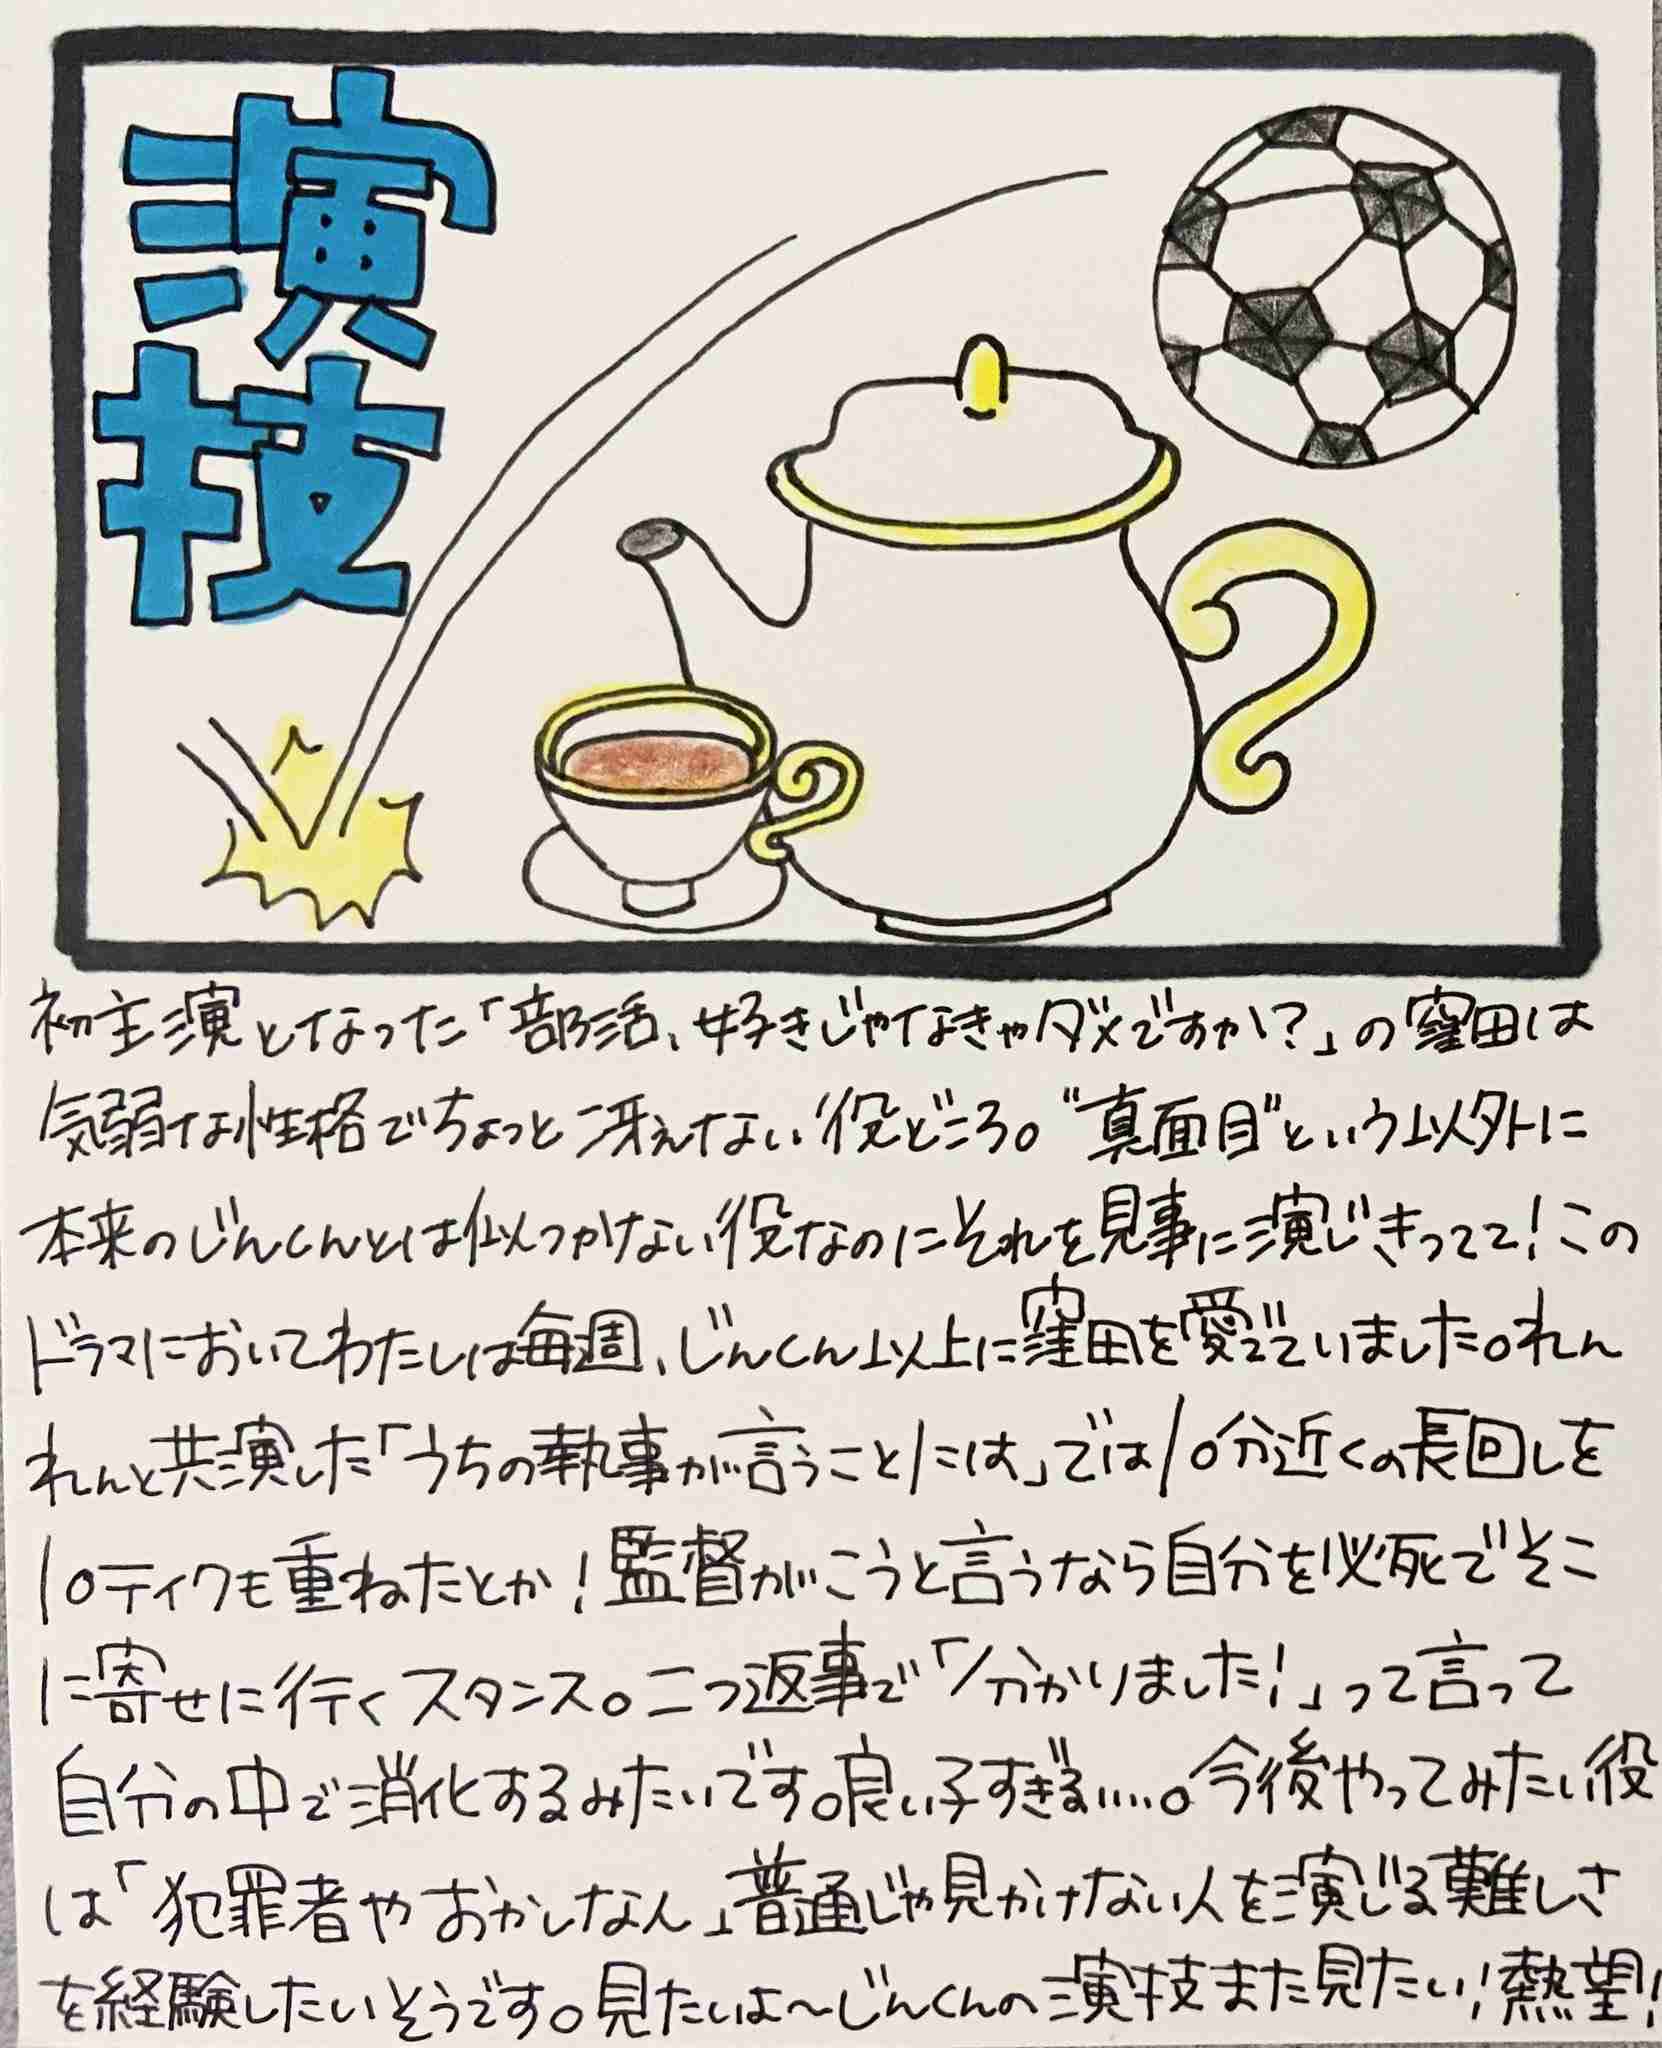 演技
初主演となった「部活、好きじゃなきゃダメですか？」の窪田は
気弱な性格でちょっと冴えない役どころ。"真面目"という以外に
本来のじんくんとは似つかない役なのにそれを見事に演じきってて！この
ドラマにおいてわたしは毎週、じんくん以上に窪田を愛でていました。れん
れんと共演した「うちの執事が言うことには」では10分近くの長回しを
10テイクも重ねたとか！監督がこうと言うなら自分を必死でそこ
に寄せに行くスタンス。二つ返事で「分かりました！」って言って
自分の中で消化するみたいです。良い子すぎる…。今後やってみたい役
は「犯罪者やおかしなん」普通じゃ見かけない人を演じる難しさ
を経験したいそうです。見たいよ〜じんくんの演技また見たい！熱望！